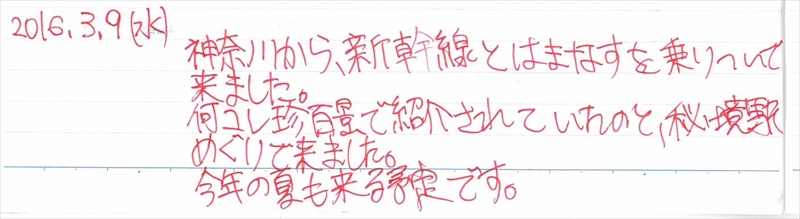 2016.3.9(水)
神奈川から、新幹線とはまなすを乗りついで
来ました。
何コレ珍百景で紹介されていたのと、秘境駅
めぐりで来ました。
今年の夏も来る予定です。